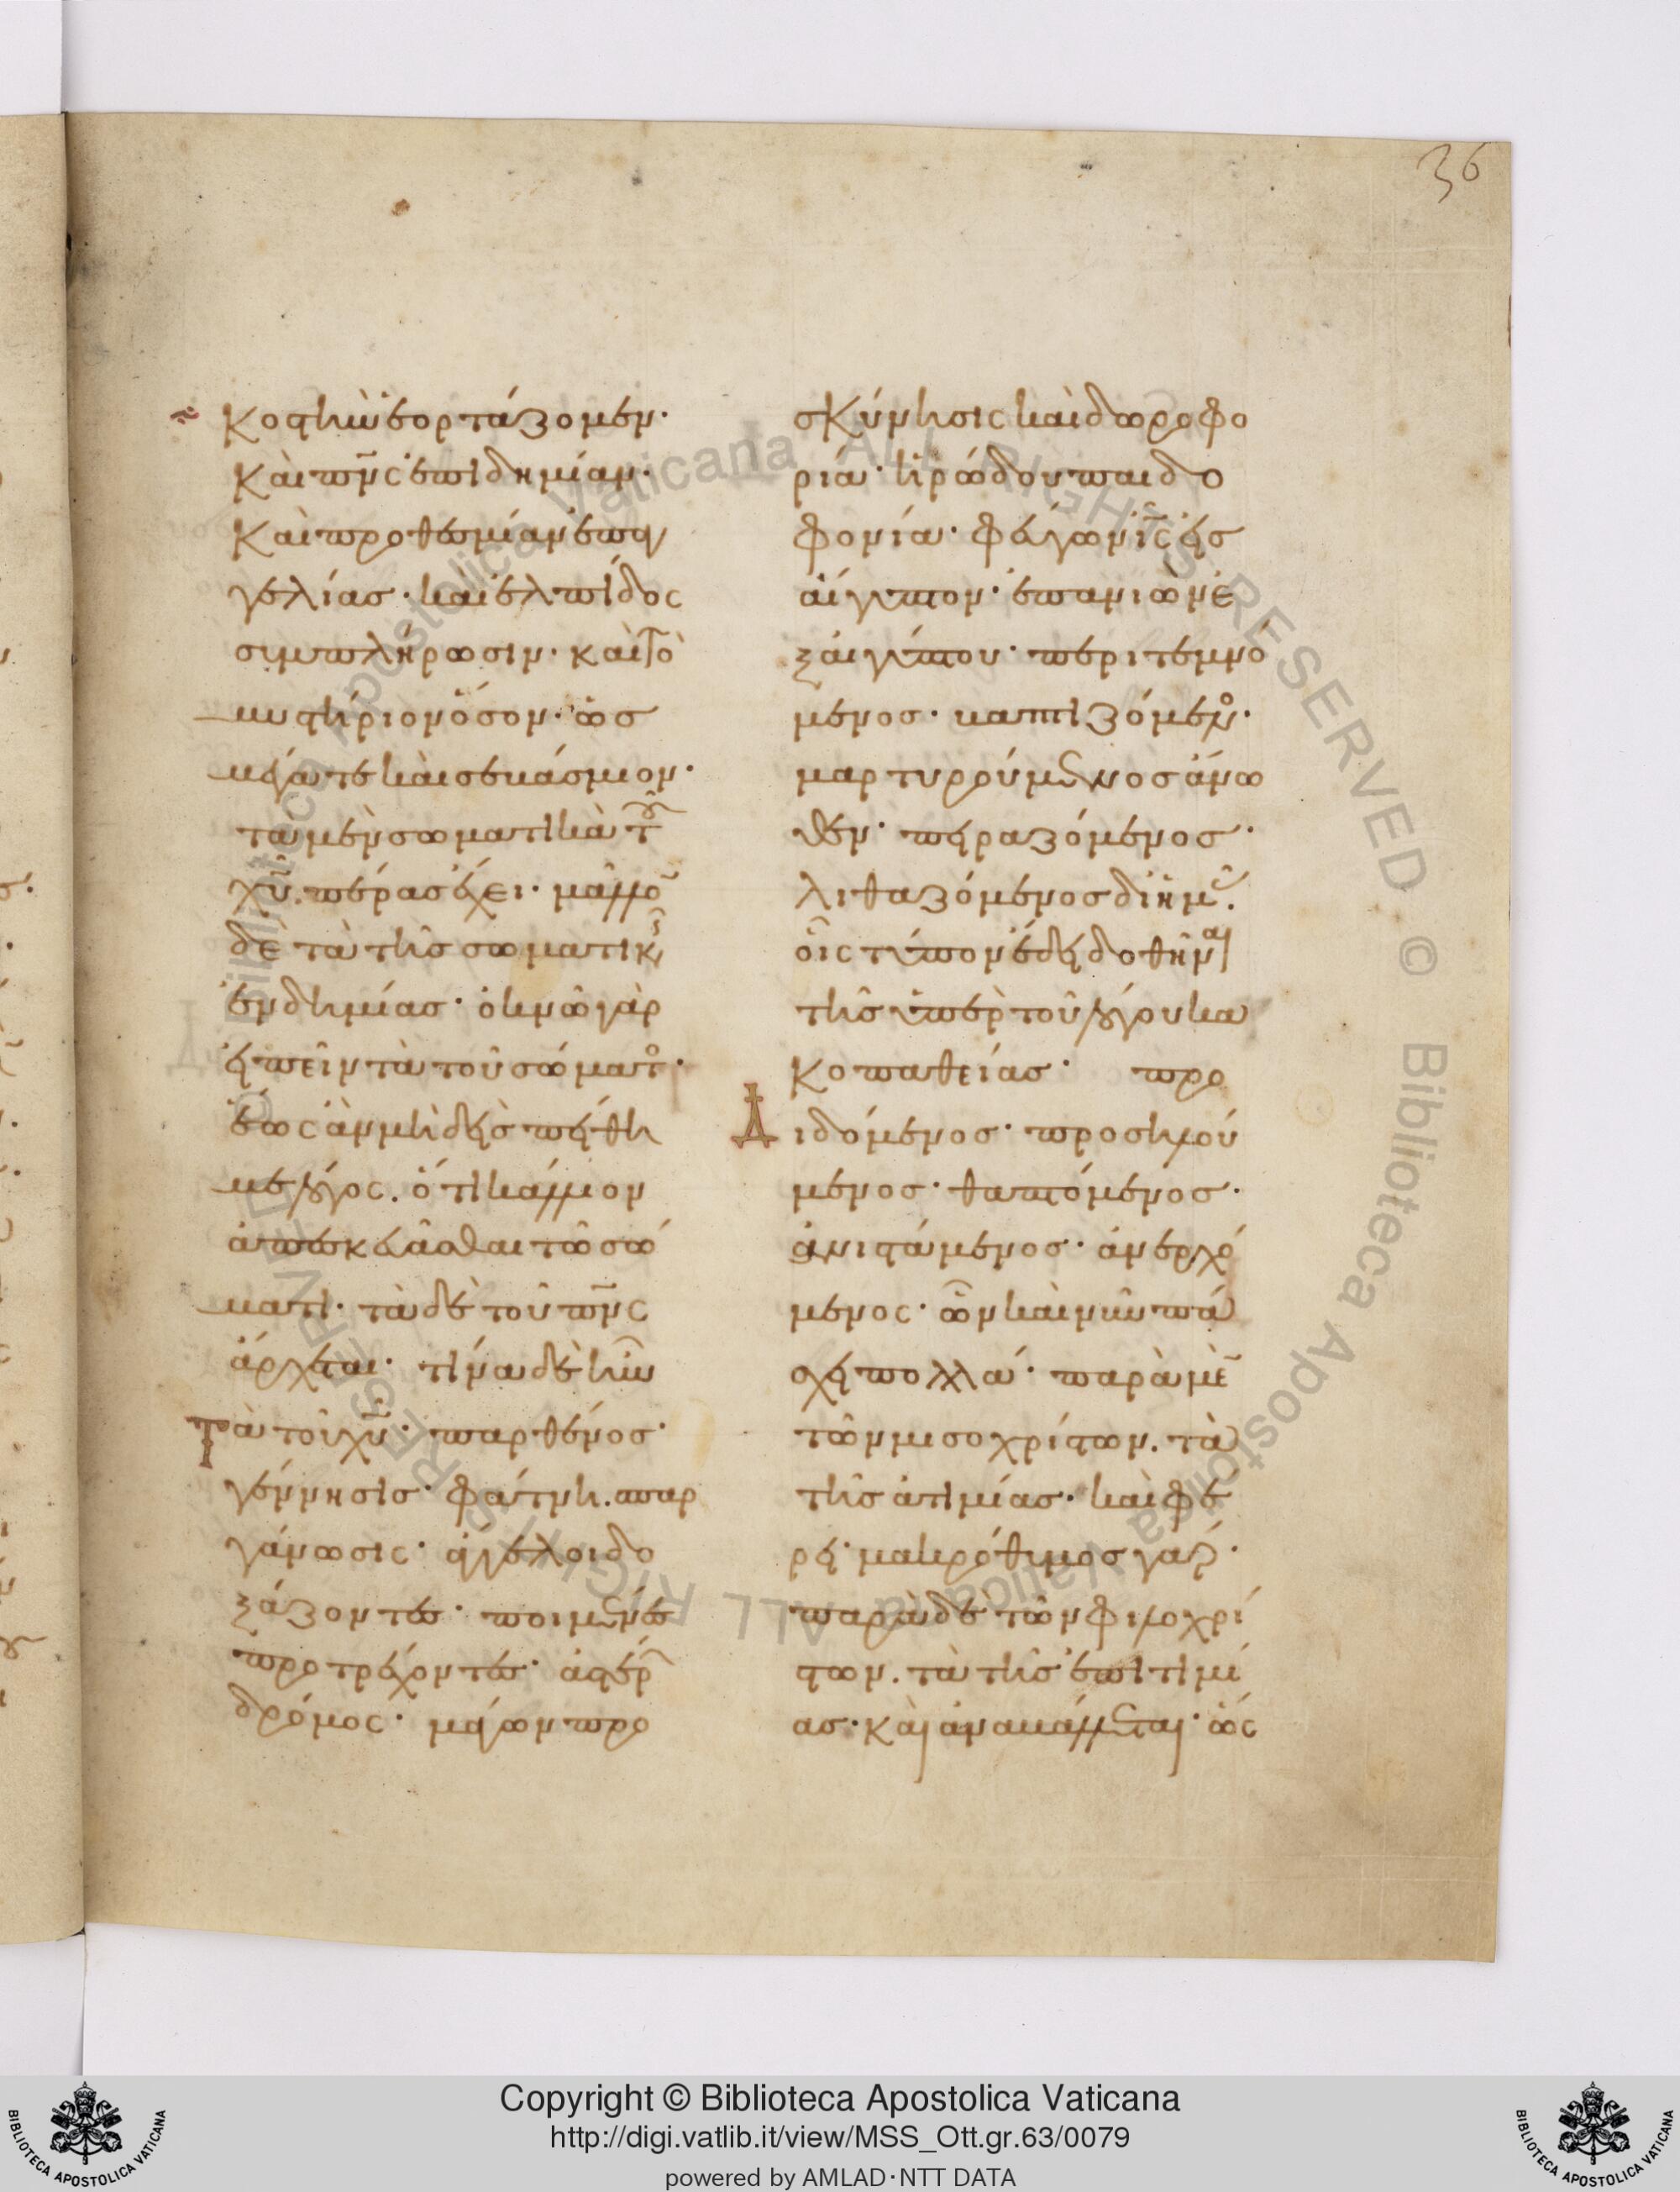 36
κοστὴν ἑορτάζομεν·
καὶ πν̅ς ἐπιδημίαν·
καὶ προθεσμίαν ἐπαγ
γελίας· καὶ ἐλπίδος
συμπλήρωσιν· καὶ τὸ
μυστήριον ὅσον· ὡς
μέγα τε καὶ σεβάσμιον·
τὰ μὲν σωματικὰ τοῦ
χυ̅. πέρας ἔχει· μᾶλλο̅
δὲ τὰ τῆς σωματικῆς
ἐνδημίας· ὀκνῶ γὰρ
εἰπεῖν τὰ τοῦ σώματος·
ἕως ἂν μηδεὶς πείθη
με λόγος. ὅτι κάλλιον
ἀπεσκευᾶσθαι τῶ σώ
ματι· τὰ δὲ τοῦ πν̅ς
ἄρχεται· τίνα δὲ ἦν
τὰ τοῦ χυ̅· παρθένος·
γέννησις· φάτνη. σπαρ
γάνωσις· ἄγγελοι δο
ξάζοντες· ποιμένες
προτρέχοντες· ἀστέρ(ος)
δρόμος· μάγων προ
σκύνησις καὶ δωροφο
ρία· ἡρώδου παιδο
φονία· φεύγων ι̅ς̅ εἰς
αἴγυπτον· ἐπανιὼν ἐ
ξ αἰγύπτου· περιτεμνό
μενος· βαπτιζόμενος·
μαρτυρούμενος ἄνω
θεν· πειραζόμενος·
λιθαζόμενος δι' ἡμᾶς.
οἷς τύπον ἔδει δοθῆναι
τῆς ὑπὲρ τοῦ λόγου κα
κοπαθείας· προ
διδόμενος· προσηλού
μενος· θαπτόμενος·
ἀνιστάμενος· ἀνερχό
μενος· ὧν καὶ νῦν πά
σχει πολλά· παρὰ μὲ̅
τῶν μισοχρίστων. τὰ
τῆς ἀτιμίας· καὶ φέ
ρει· μακρόθυμος γάρ·
παρὰ δὲ τῶν φιλοχρί
στων. τὰ τῆς ἐπιτιμί
ας· καὶ ἀναβάλλεται· ὡς
Copyright © Biblioteca Apostolica Vaticana
http://digi.vatlib.it/view/MSS_Ott.gr.63/0079
powered by AMLAD·NTT DATA
BIBLIOTECA APOSTOLICA VATICANA
BIBLIOTECA APOSTOLICA VATICANA